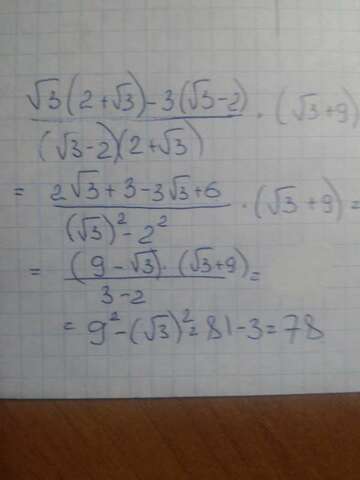 (√3(2+√3)-3(√3-2))/((√3-2)(2+√3)) · (√3+9)
= (2√3+3-3√3+6)/((√3)²-2²) · (√3+9)=
= ((9-√3)·(√3+9))/(3-2) =
= 9²-(√3)²=81-3=78